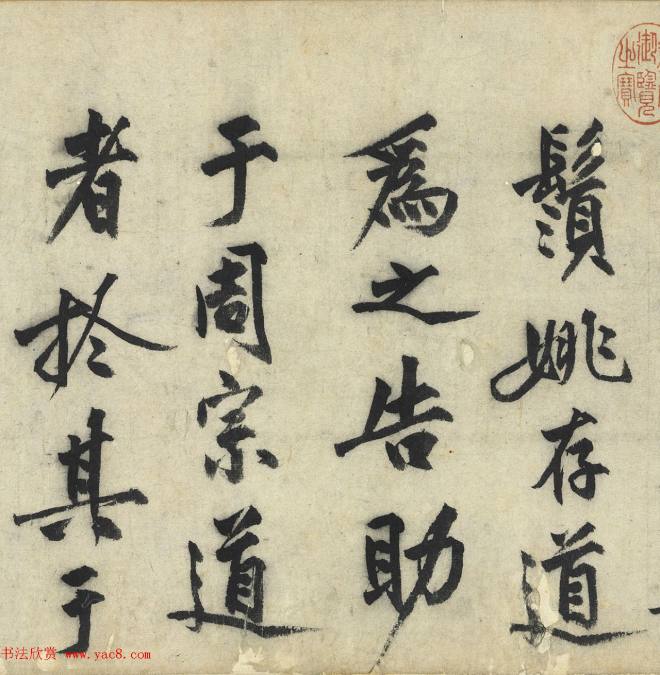 鬚姚存道
爲之告助
于周宗道
者於其于
御覽之寶
书法欣赏 www.yac8.com